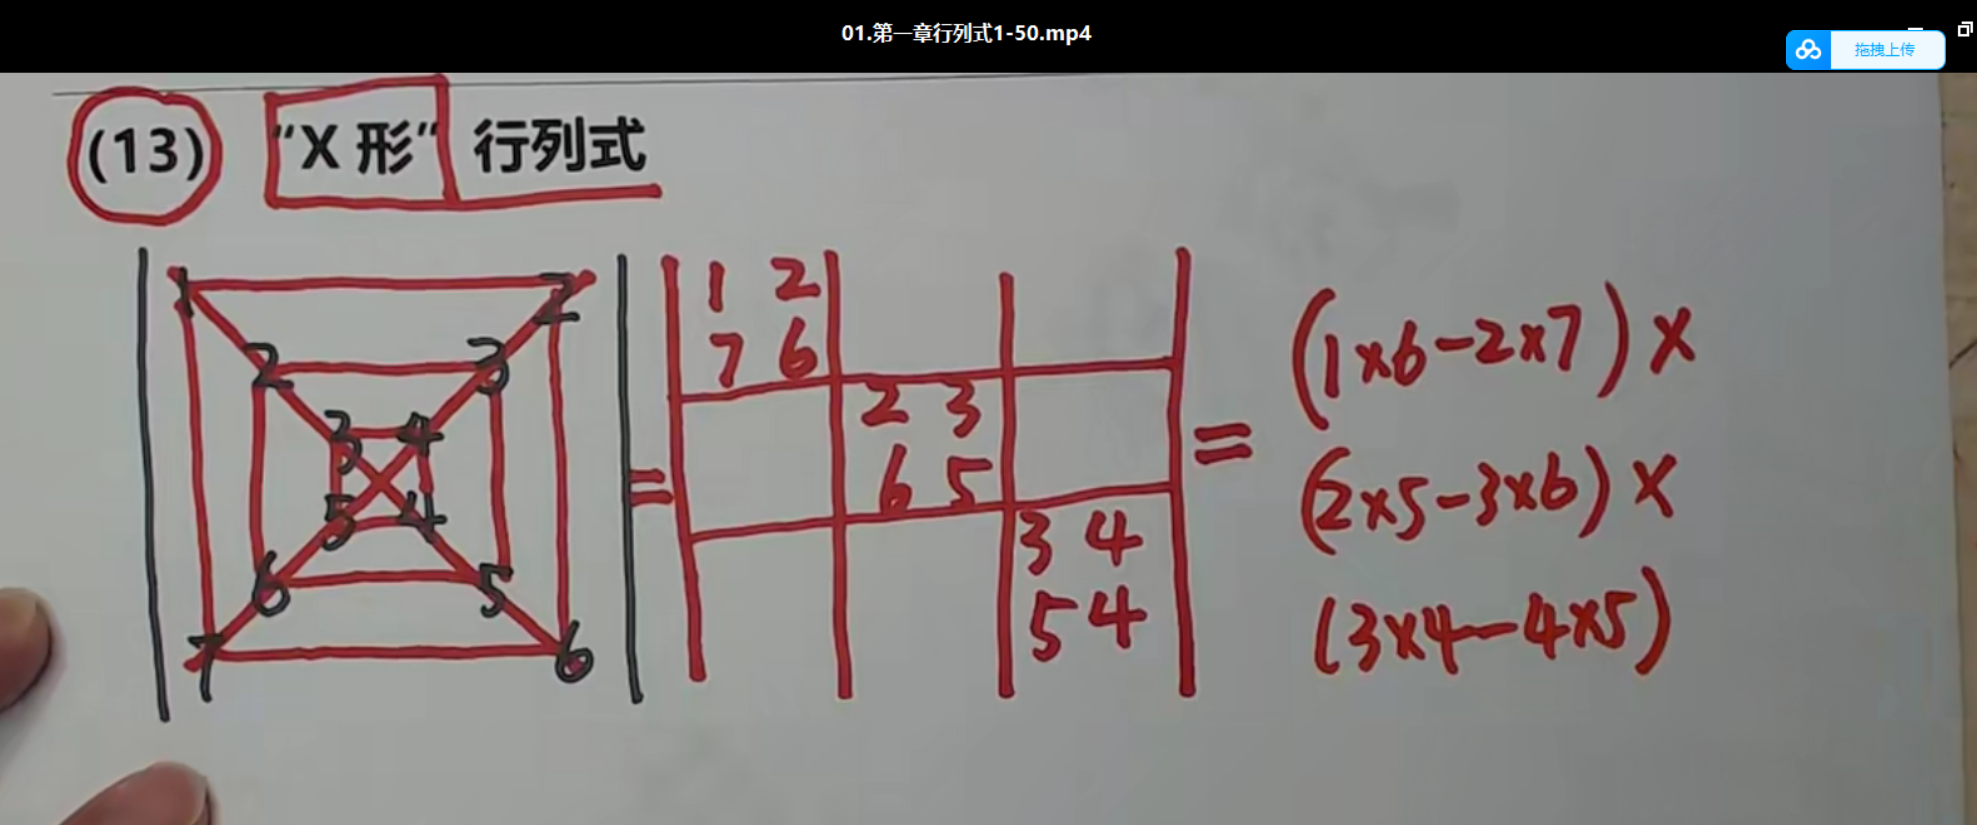 01.第一章行列式1-50.mp4
拖拽上传
(13) “X 形” 行列式
1 2
2 3
3 4
5 4
6 5
7 6
=
1 2
7 6
2 3
6 5
3 4
5 4
=
(1×6-2×7)×
(2×5-3×6)×
(3×4-4×5)